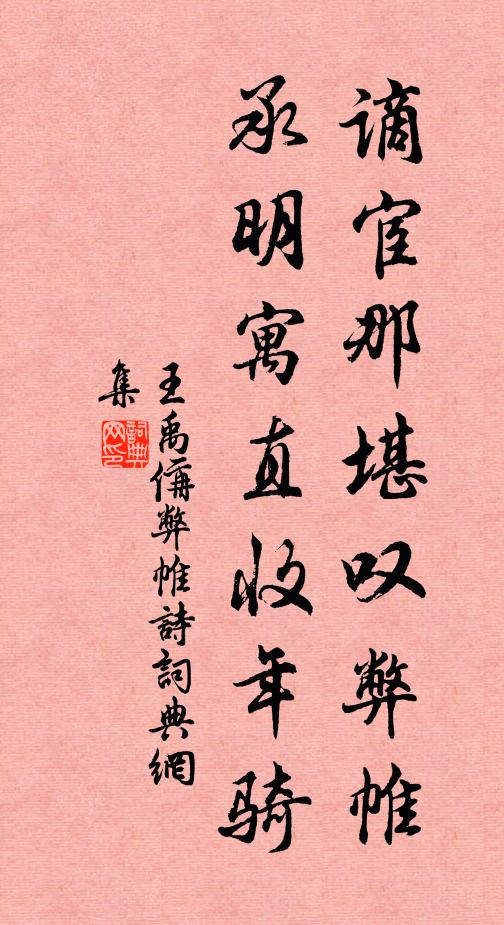 谪宦那堪叹弊帷
承明寓直收年骑
王禹偁弊帷詩詞典網
集
詞典
网印